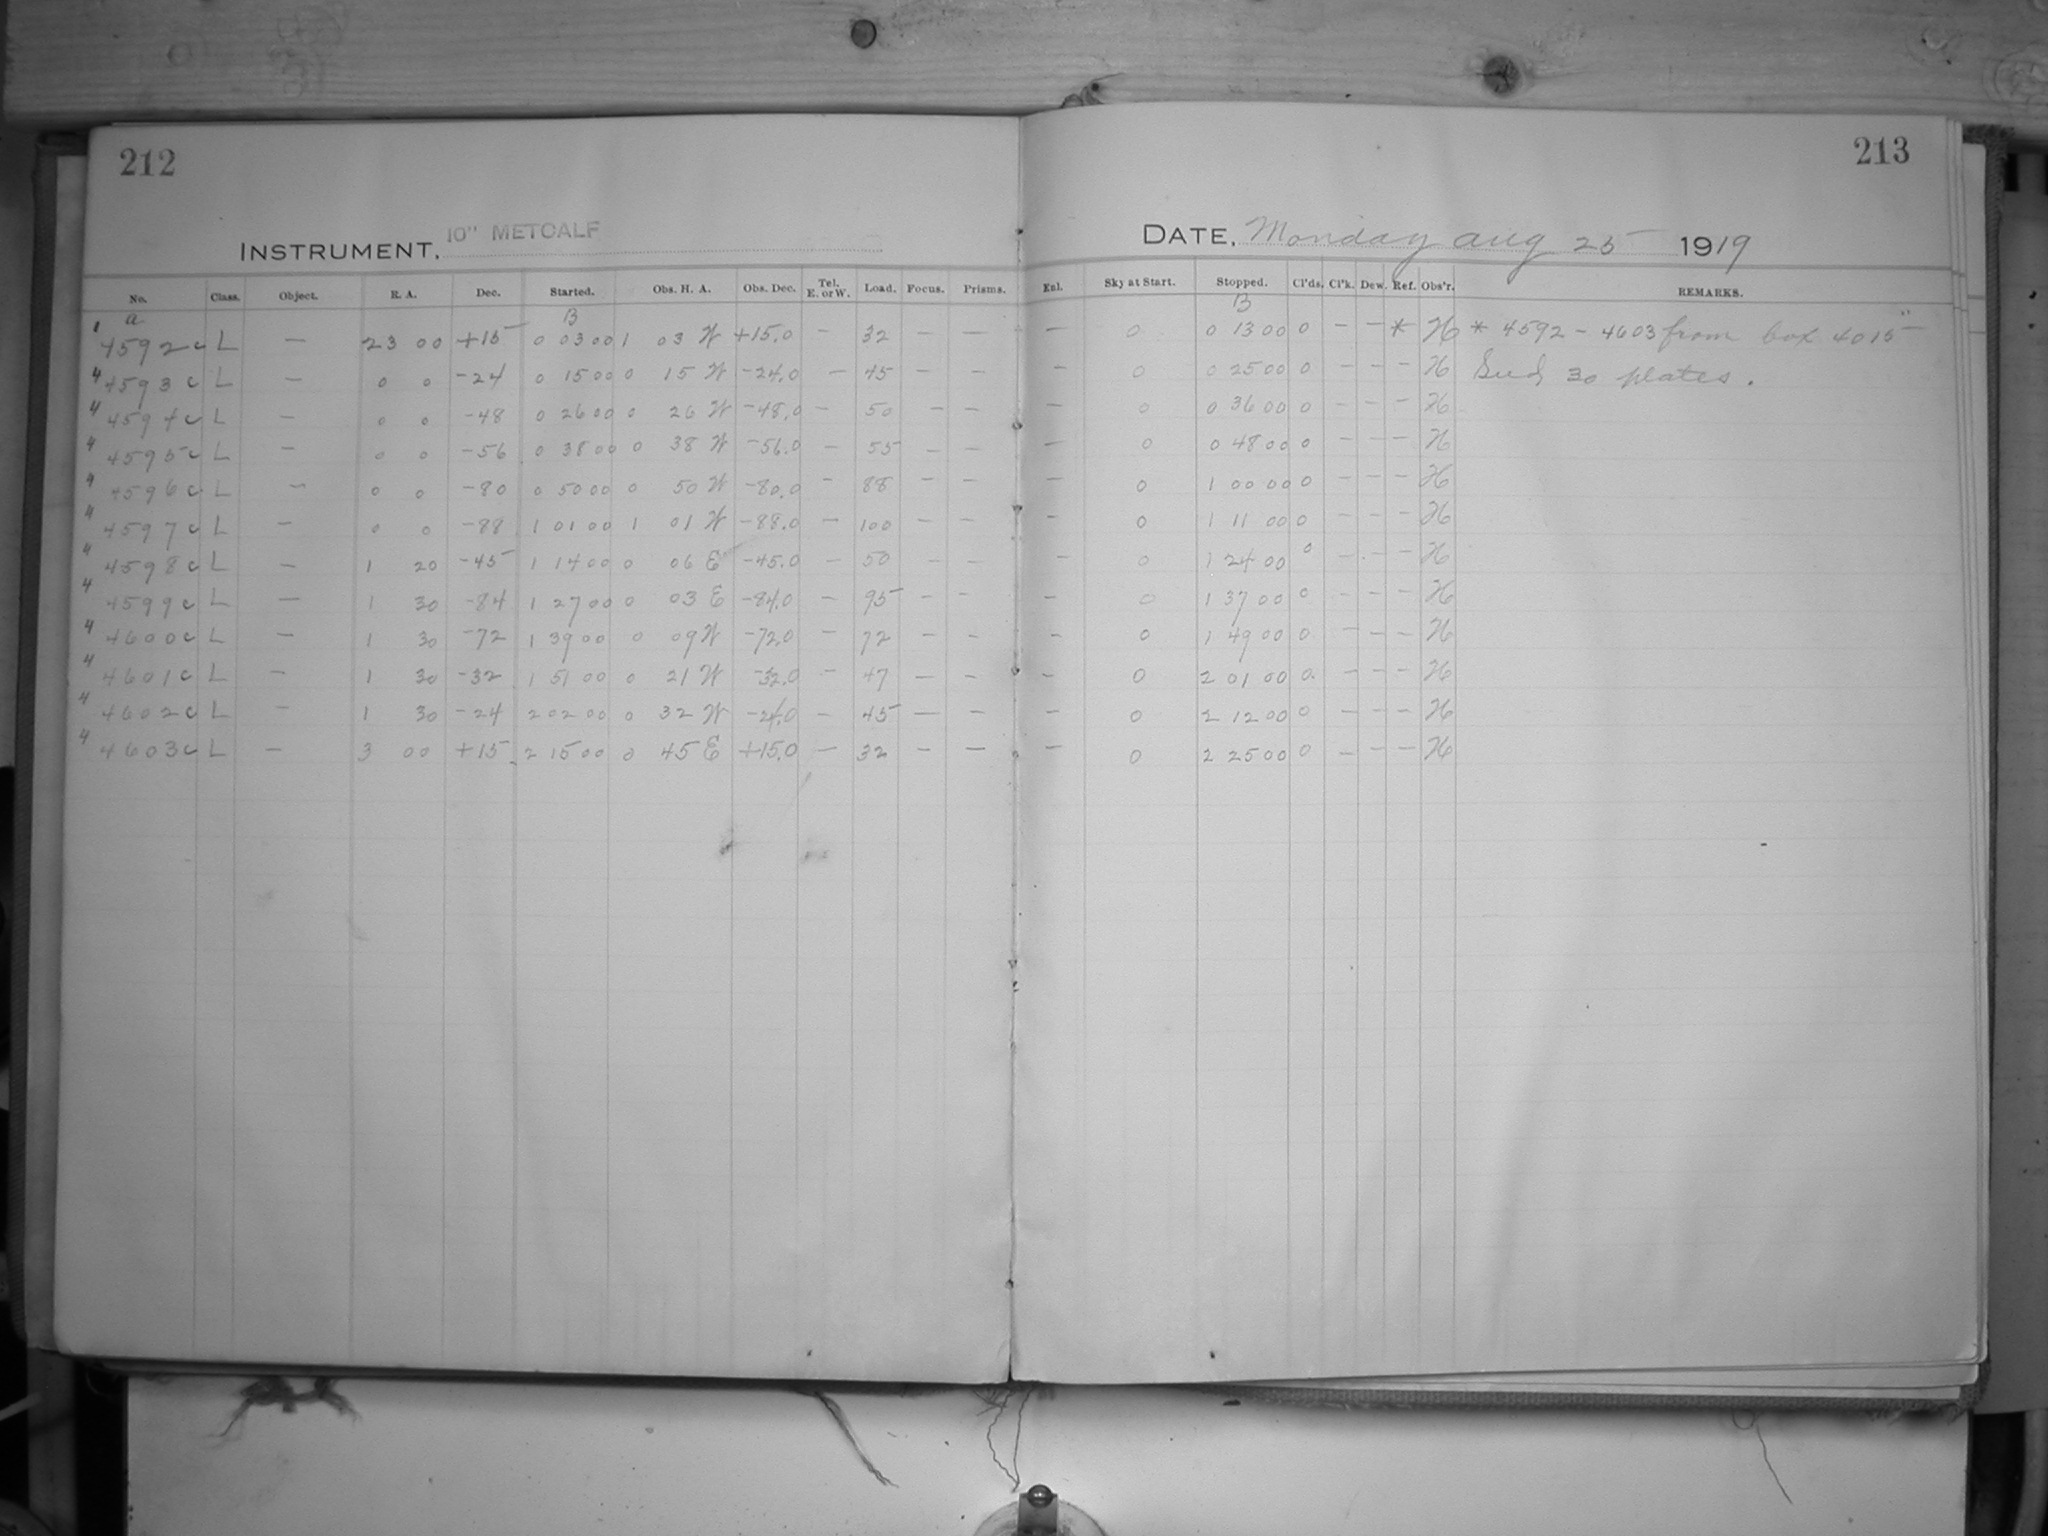 212
213
INSTRUMENT, 10" METCALF
DATE, Monday Aug 25 1919
No. Class. Object. R. A. Dec. Started. Obs. H. A. Obs. Dec. Tel. E. or W. Load. Focus. Prisms. Enl. Sky at Start. Stopped. Cl'ds. Cl'k. Dew. Ref. Obs'r. REMARKS.
a B B
1 4592c L — 23 00 +15 0 03 00 1 03 W +15.0 — 32 — — — 0 0 13 00 0 — — * H * 4592 - 4603 from box 4015"
4 4593c L — 0 0 -24 0 15 00 0 15 W -24.0 — 45 — — — 0 0 25 00 0 — — — H 30 plates.
4 4594c L — 0 0 -48 0 26 00 0 26 W -48.0 — 50 — — — 0 0 36 00 0 — — — H
4 4595c L — 0 0 -56 0 38 00 0 38 W -56.0 — 55 — — — 0 0 48 00 0 — — — H
4 4596c L — 0 0 -80 0 50 00 0 50 W -80.0 — 88 — — — 0 1 00 00 0 — — — H
4 4597c L — 0 0 -88 1 01 00 1 01 W -88.0 — 100 — — — 0 1 11 00 0 — — — H
4 4598c L — 1 20 -45 1 14 00 0 06 E -45.0 — 50 — — — 0 1 24 00 0 — — — H
4 4599c L — 1 30 -84 1 27 00 0 03 E -84.0 — 95 — — — 0 1 37 00 0 — — — H
4 4600c L — 1 30 -72 1 39 00 0 09 W -72.0 — 72 — — — 0 1 49 00 0 — — — H
4 4601c L — 1 30 -32 1 51 00 0 21 W -32.0 — 47 — — — 0 2 01 00 0 — — — H
4 4602c L — 1 30 -24 2 02 00 0 32 W -24.0 — 45 — — — 0 2 12 00 0 — — — H
4 4603c L — 3 00 +15 2 15 00 0 45 E +15.0 — 32 — — — 0 2 25 00 0 — — — H